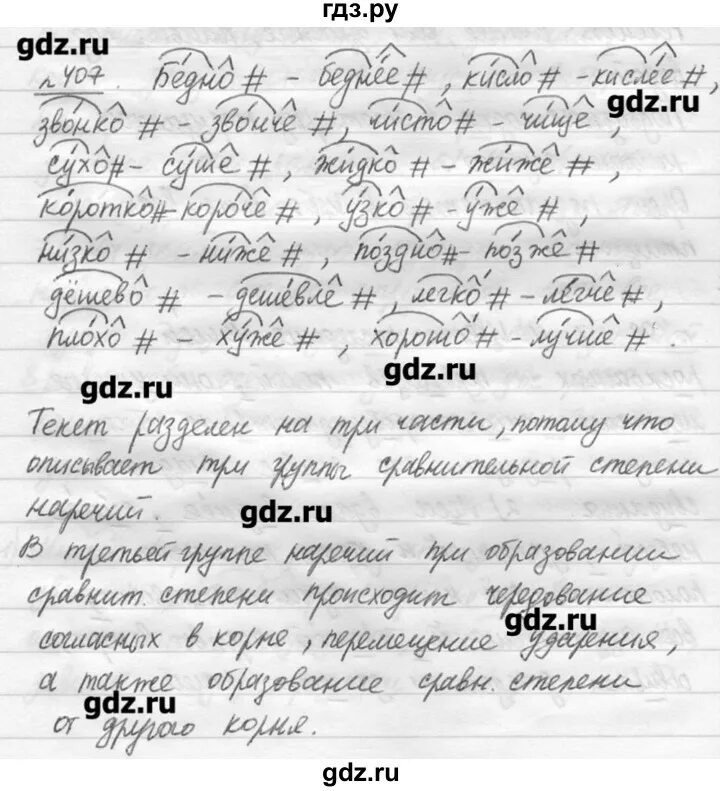 гдз.ру
gdz.ru
№407. Бе́дно # - бедне́е #, ки́сло # - кисле́е #,
gdz.ru
зво́нко # - зво́нче #, чи́сто # - чи́ще,
су́хо # - су́ше #, жи́дко # - жи́же #,
ко́ротко # - коро́че #, у́зко # - у́же #,
ни́зко # - ни́же #, по́здно # - по́зже #
дёшево # - деше́вле #, легко́ # - ле́гче #,
пло́хо # - ху́же #, хорошо́ # - лу́чше #.
gdz.ru gdz.ru
Текст разделен на три части, потому что
описывает три группы сравнительной степени
наречий.
gdz.ru
В третьей группе наречий при образовании
сравнит. степени происходит чередование
gdz.ru
согласных в корне, перемещение ударения,
а также образование сравн. степени
gdz.ru
от другого корня.
gdz.ru